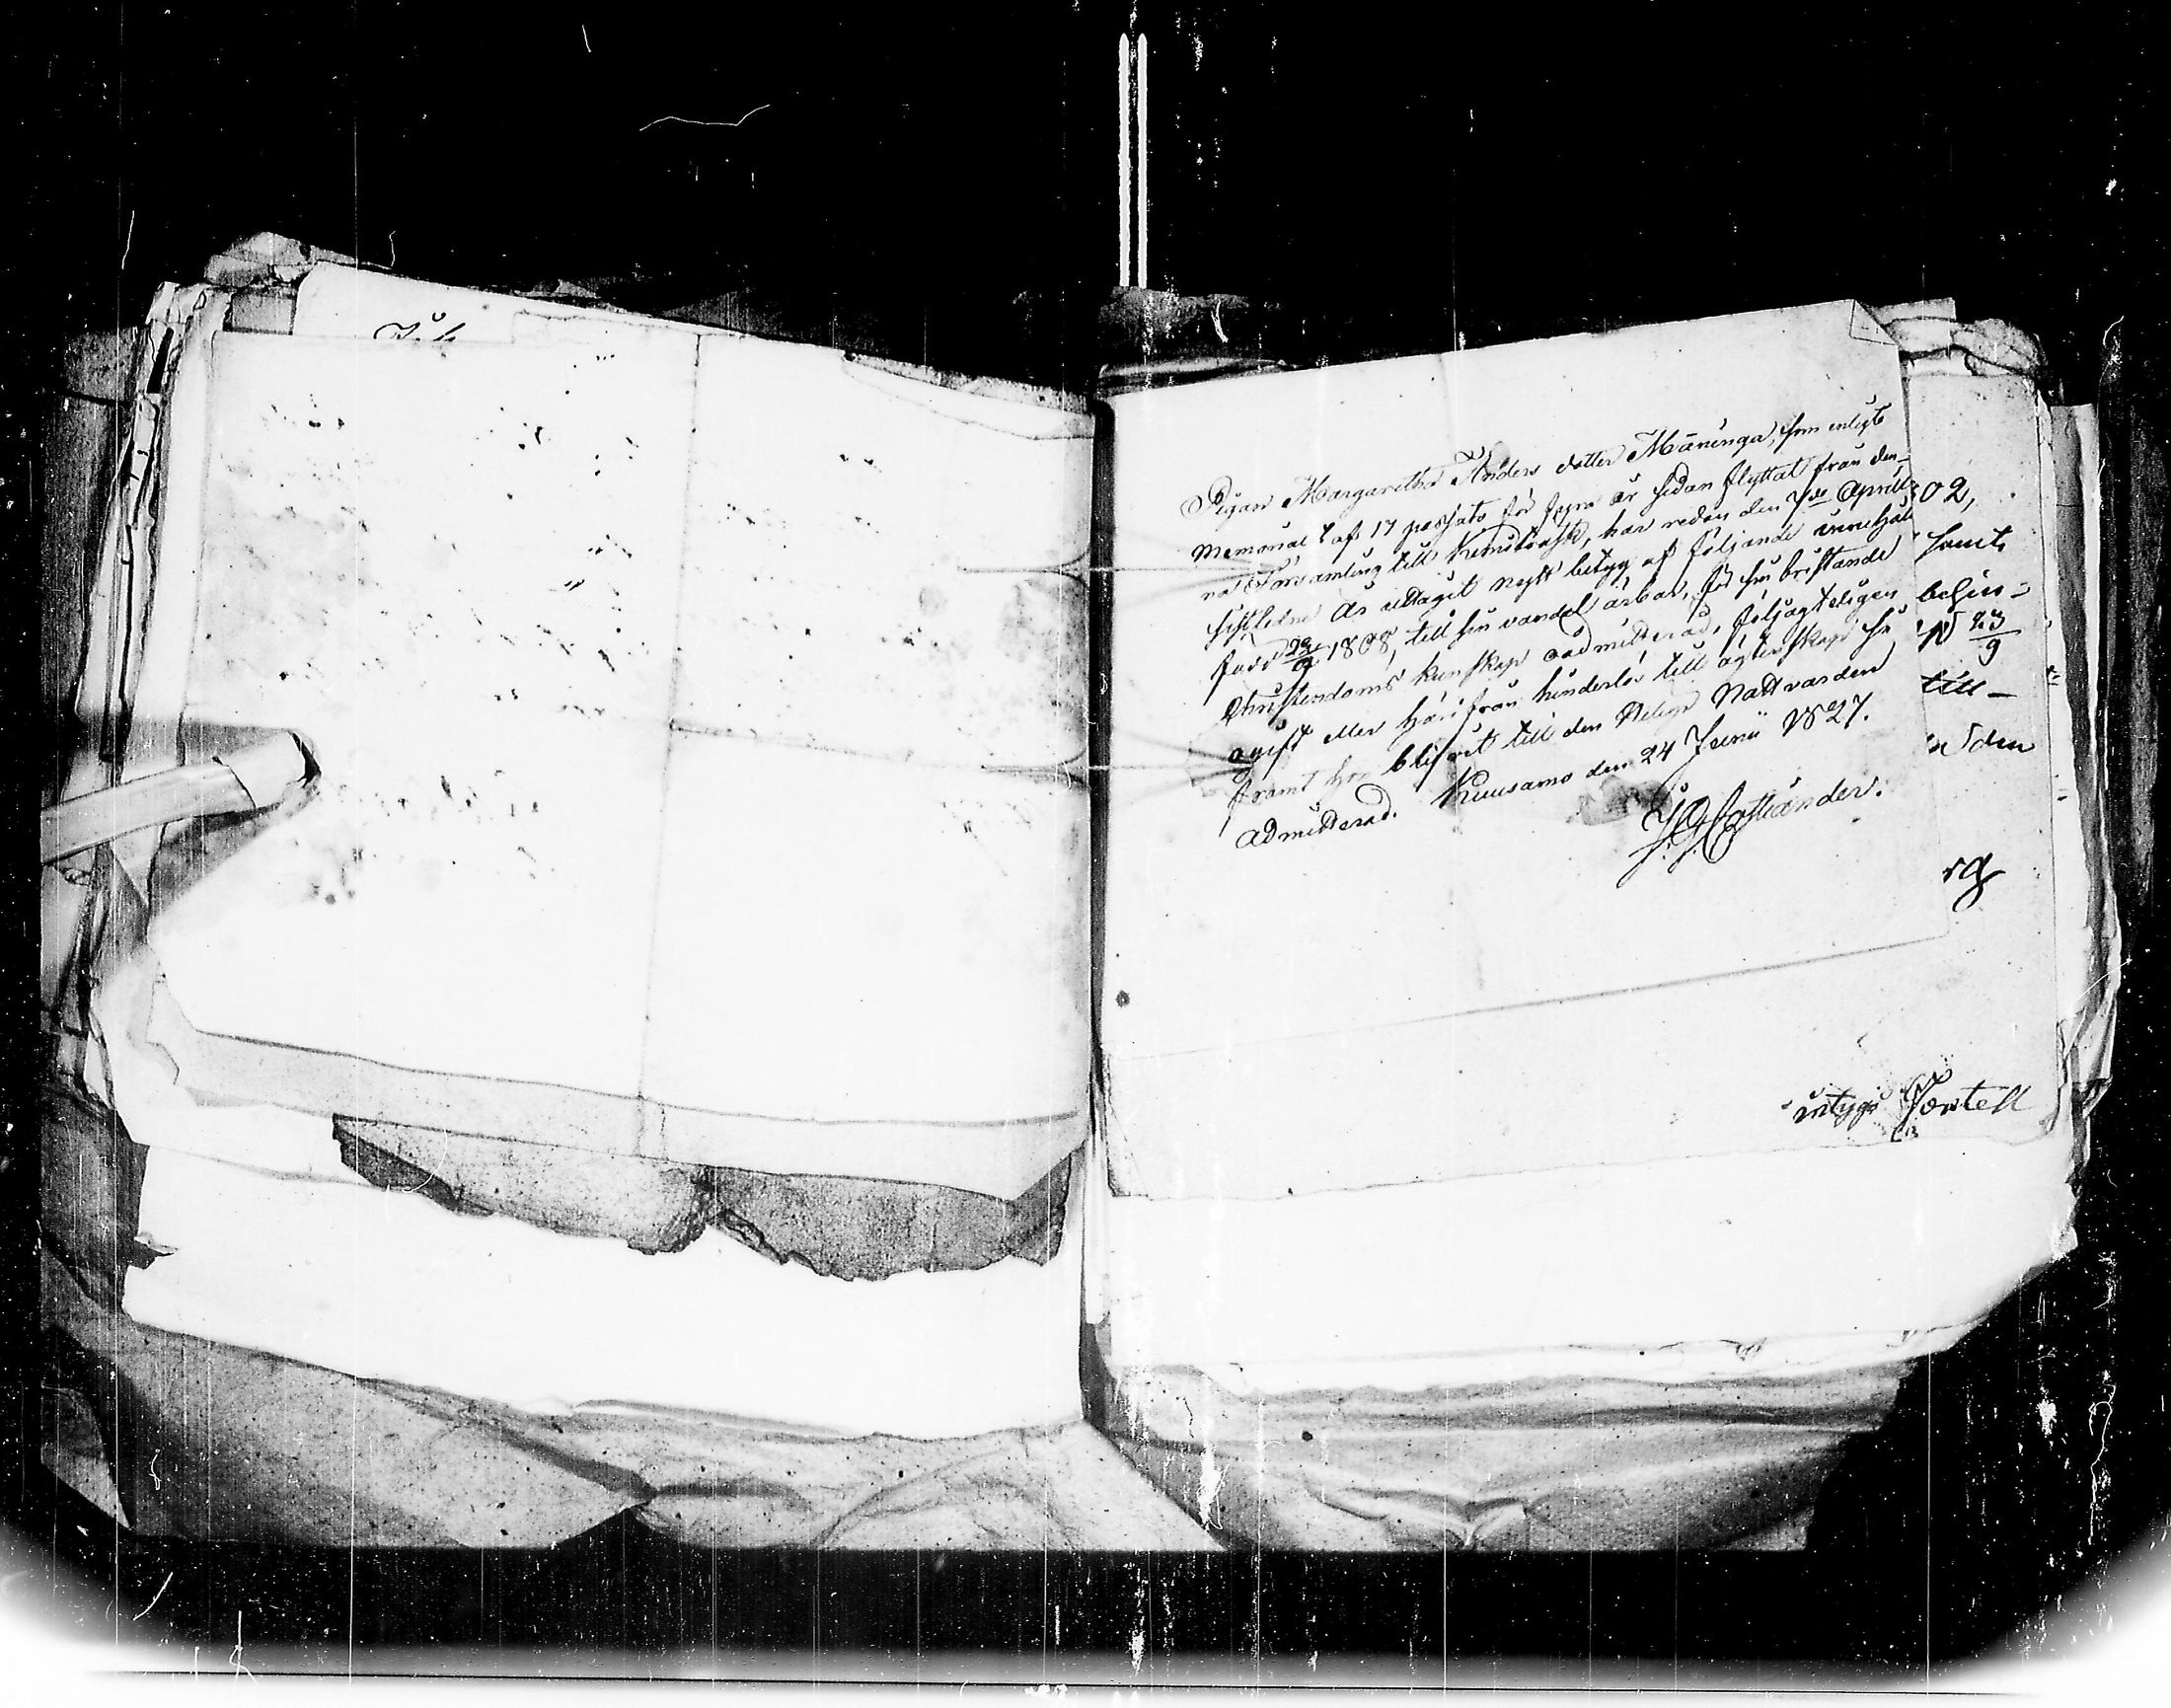 Pigan Margaretha Anders dotter Mäninga, som enligt
Memorial t af 17 passats för fyra år sedan flyttat från den-
na Församling till Kemiträsk, har redan den 7de Aprill
sistledne år uttagit nytt betyg af följande innehåll
född 29/9 1808, till sin vandel ärbar, för sin bristande
Christendoms kunskap oadmitterad, följagteligen
ogift eller härifrån hinderlös till ägtenskap så
framt hon blifvit till den Heliga Nattvarden
admitterad. Kuusamo den 24 Junii 1827.
02,
samt
behin-
23/9
till-
den
rg
intygs Fortell